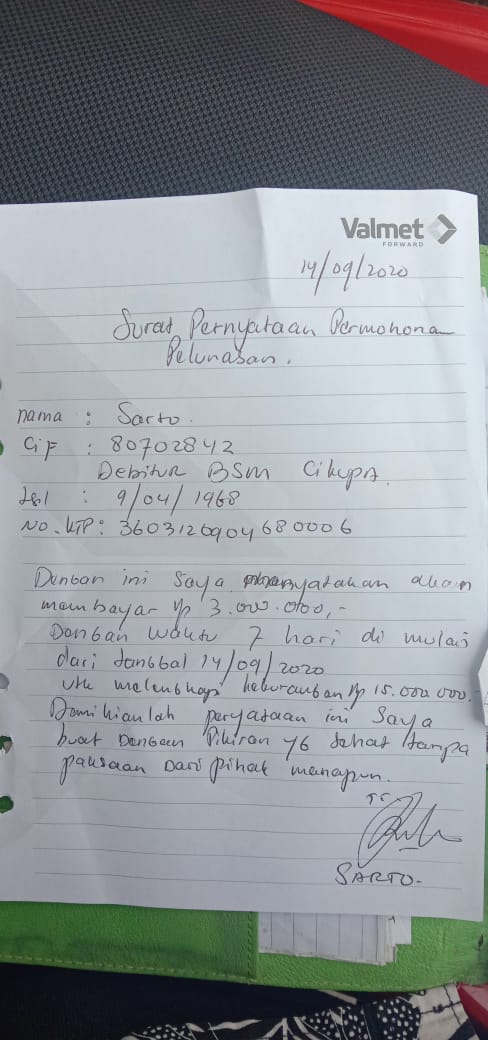 Valmet
FORWARD
14/09/2020
Surat Pernyataan Permohonan
Pelunasan.
nama : Sarto.
CiF : 80702842
Debitur BSM CikupA.
tgl : 9/04/1968
NO. KTP : 3603120904680006
Dengan ini Saya menyatakan akan
membayar Rp 3.000.000,-
Dengan waktu 7 hari di mulai
dari tanggal 14/09/2020
utk melengkapi kekurangan Rp 15.000.000.
Demikianlah peryataan ini Saya
buat Dengan Pikiran yg sehat tanpa
paksaan Dari pihak manapun.
SARTO.